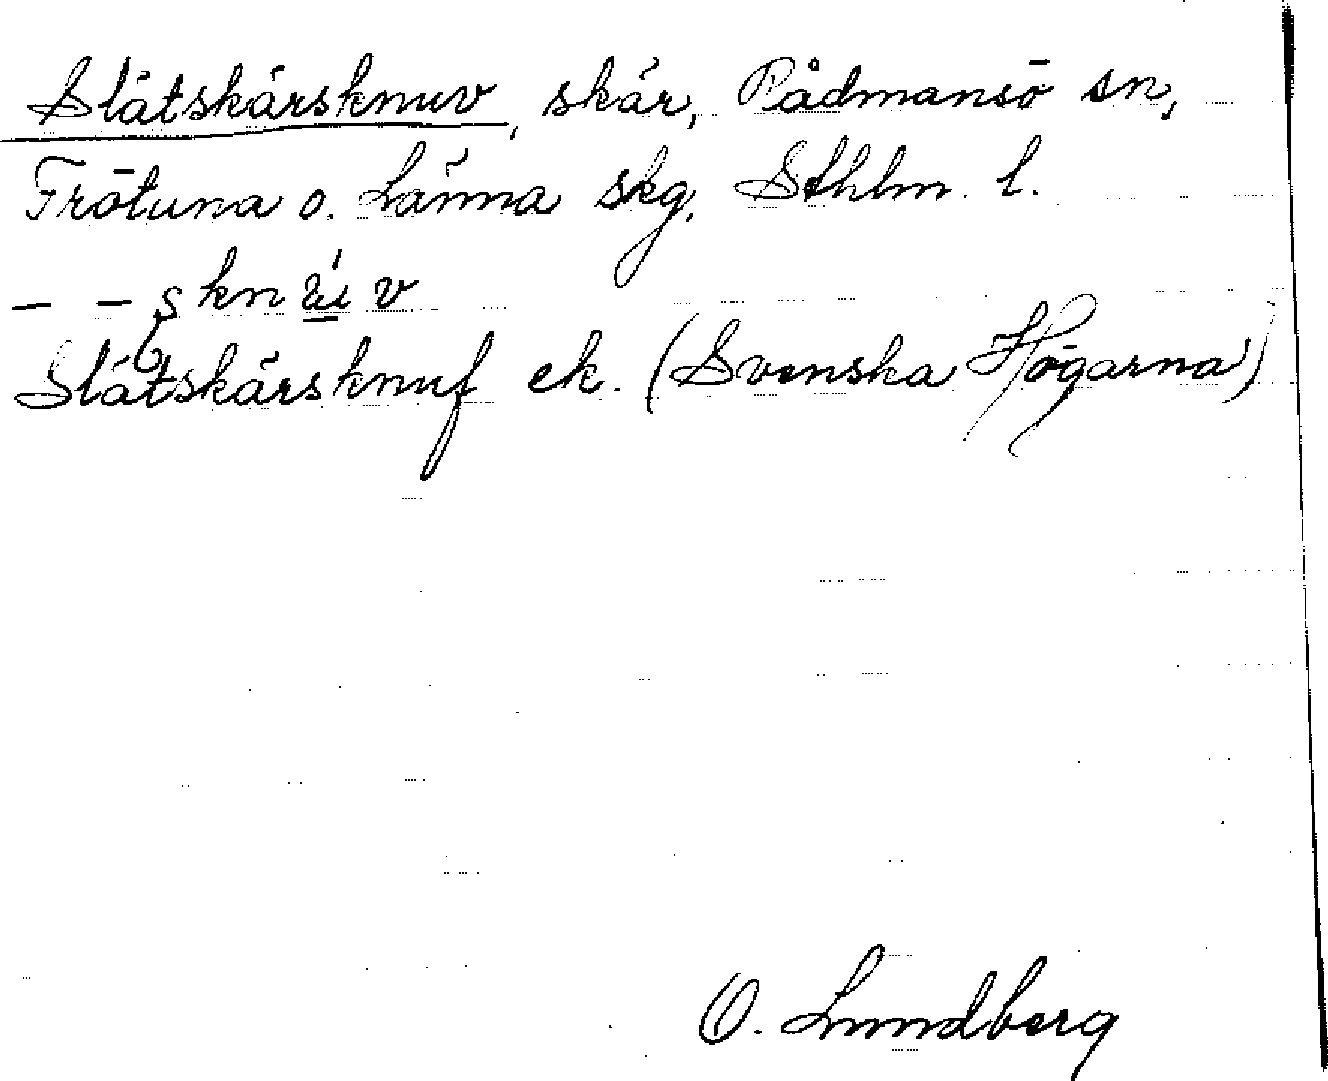 Slätskärsknuv, skär, Rådmansö sn,
Frötuna o. Länna skg, Sthlm. l.
– – sknu̲v
Slätskärsknuf ek. (Svenska Högarna)
O. Lundberg